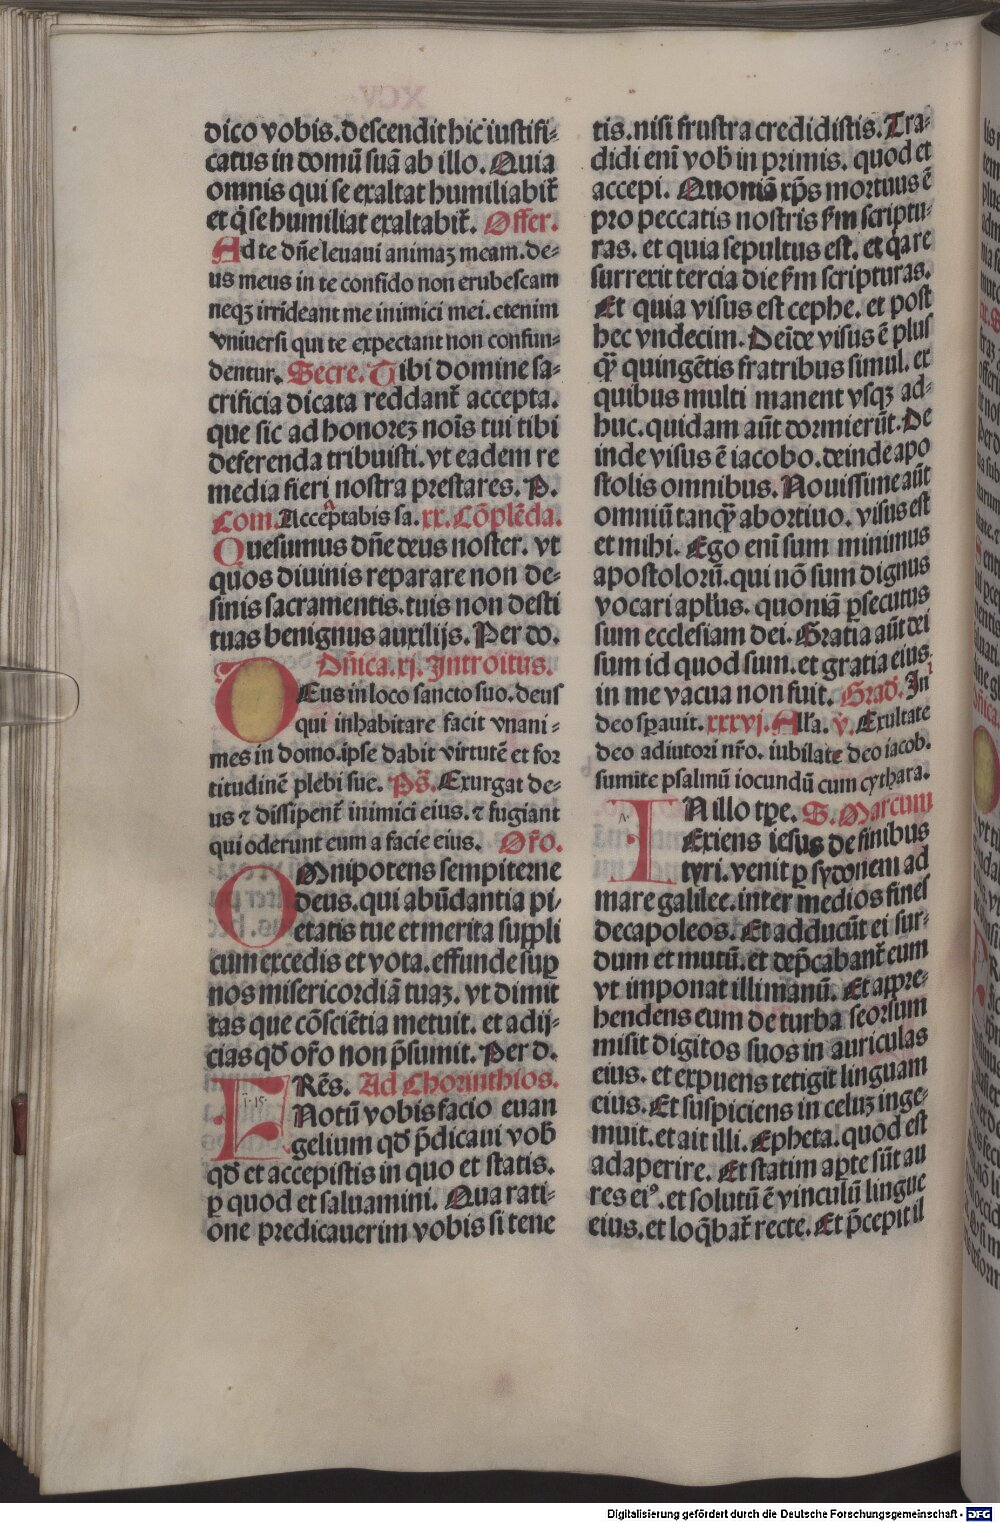 dico vobis. descendit hic iustifi-
catus in domū suā ab illo. Quia
omnis qui se exaltat humiliabit̃
et q̇ se humiliat exaltabit̃. Offer.
Ad te dñe leuaui animaꝫ meam. de-
us meus in te confido non erubescam
neqꝫ irrideant me inimici mei. etenim
vniuersi qui te expectant non confun-
dentur. Secre. Tibi domine sa-
crificia dicata reddant̃ accepta.
que sic ad honoreꝫ noīs tui tibi
deferenda tribuisti. vt eadem re
media fieri nostra prestares. P.
Com. Acceptabis sa. xx. Cōplēda.
Quesumus dñe deus noster. vt
quos diuinis reparare non de-
sinis sacramentis. tuis non desti
tuas benignus auxilijs. Per do.
Dñica. xj. Introitus.
DEus in loco sancto suo. deus
qui inhabitare facit vnani-
mes in domo. ipse dabit virtutē et for
titudinē plebi sue. Ps̃. Exurgat de-
us ⁊ dissipent̃ inimici eius. ⁊ fugiant
qui oderunt eum a facie eius. Or̃o.
OMnipotens sempiterne
deus. qui abūdantia pi-
etatis tue et merita suppli
cum excedis et vota. effunde suꝑ
nos misericordiā tuaꝫ. vt dimit
tas que cōsciētia metuit. et adij-
cias qđ or̃o non p̄sumit. Per d.
FRēs. Ad Chorinthios.
Notū vobis facio euan
gelium qđ p̄dicaui vob̄
qđ et accepistis in quo et statis.
ꝑ quod et saluamini. Qua rati-
one predicauerim vobis si tene
tis. nisi frustra credidistis. Tra-
didi enī vob̄ in primis. quod et
accepi. Quoniā xp̄s mortuus ē
pro peccatis nostris s̄m scriptu-
ras. et quia sepultus est. et q̇a re
surrexit tercia die s̄m scripturas.
Et quia visus est cephe. et post
hec vndecim. Deīde visus ē plus
q̄ꝫ quingētis fratribus simul. ex
quibus multi manent vsqꝫ ad-
huc. quidam aūt dormierūt. De
inde visus ē iacobo. deinde apo
stolis omnibus. Nouissime aūt
omniū tanq̄ꝫ abortiuo. visus est
et mihi. Ego enī sum minimus
apostolorū. qui nō sum dignus
vocari apl̄us. quoniā ꝑsecutus
sum ecclesiam dei. Gratia aūt dei
sum id quod sum. et gratia eius
in me vacua non fuit. Grad̄. In
deo sꝑauit. xxxvj. All̄a. v̇. Exultate
deo adiutori nr̃o. iubilate deo iacob.
sumite psalmū iocundū cum cythara.
IN illo tꝑe. S. Marcum
Exiens iesus de finibus
tyri. venit ꝑ sydonem ad
mare galilee. inter medios fines
decapoleos. Et adducūt ei sur-
dum et mutū. et dep̄cabant̃ eum
vt imponat illi manū. Et appre-
hendens eum de turba seorsum
misit digitos suos in auriculas
eius. et expuens tetigit linguam
eius. Et suspiciens in celuꝫ inge-
muit. et ait illi. Epheta. quod est
adaperire. Et statim aꝑte sūt au
res eiꝰ. et solutū ē vinculū lingue
eius. et loq̄bat̃ recte. Et p̄cepit il
Digitalisierung gefördert durch die Deutsche Forschungsgemeinschaft - DFG